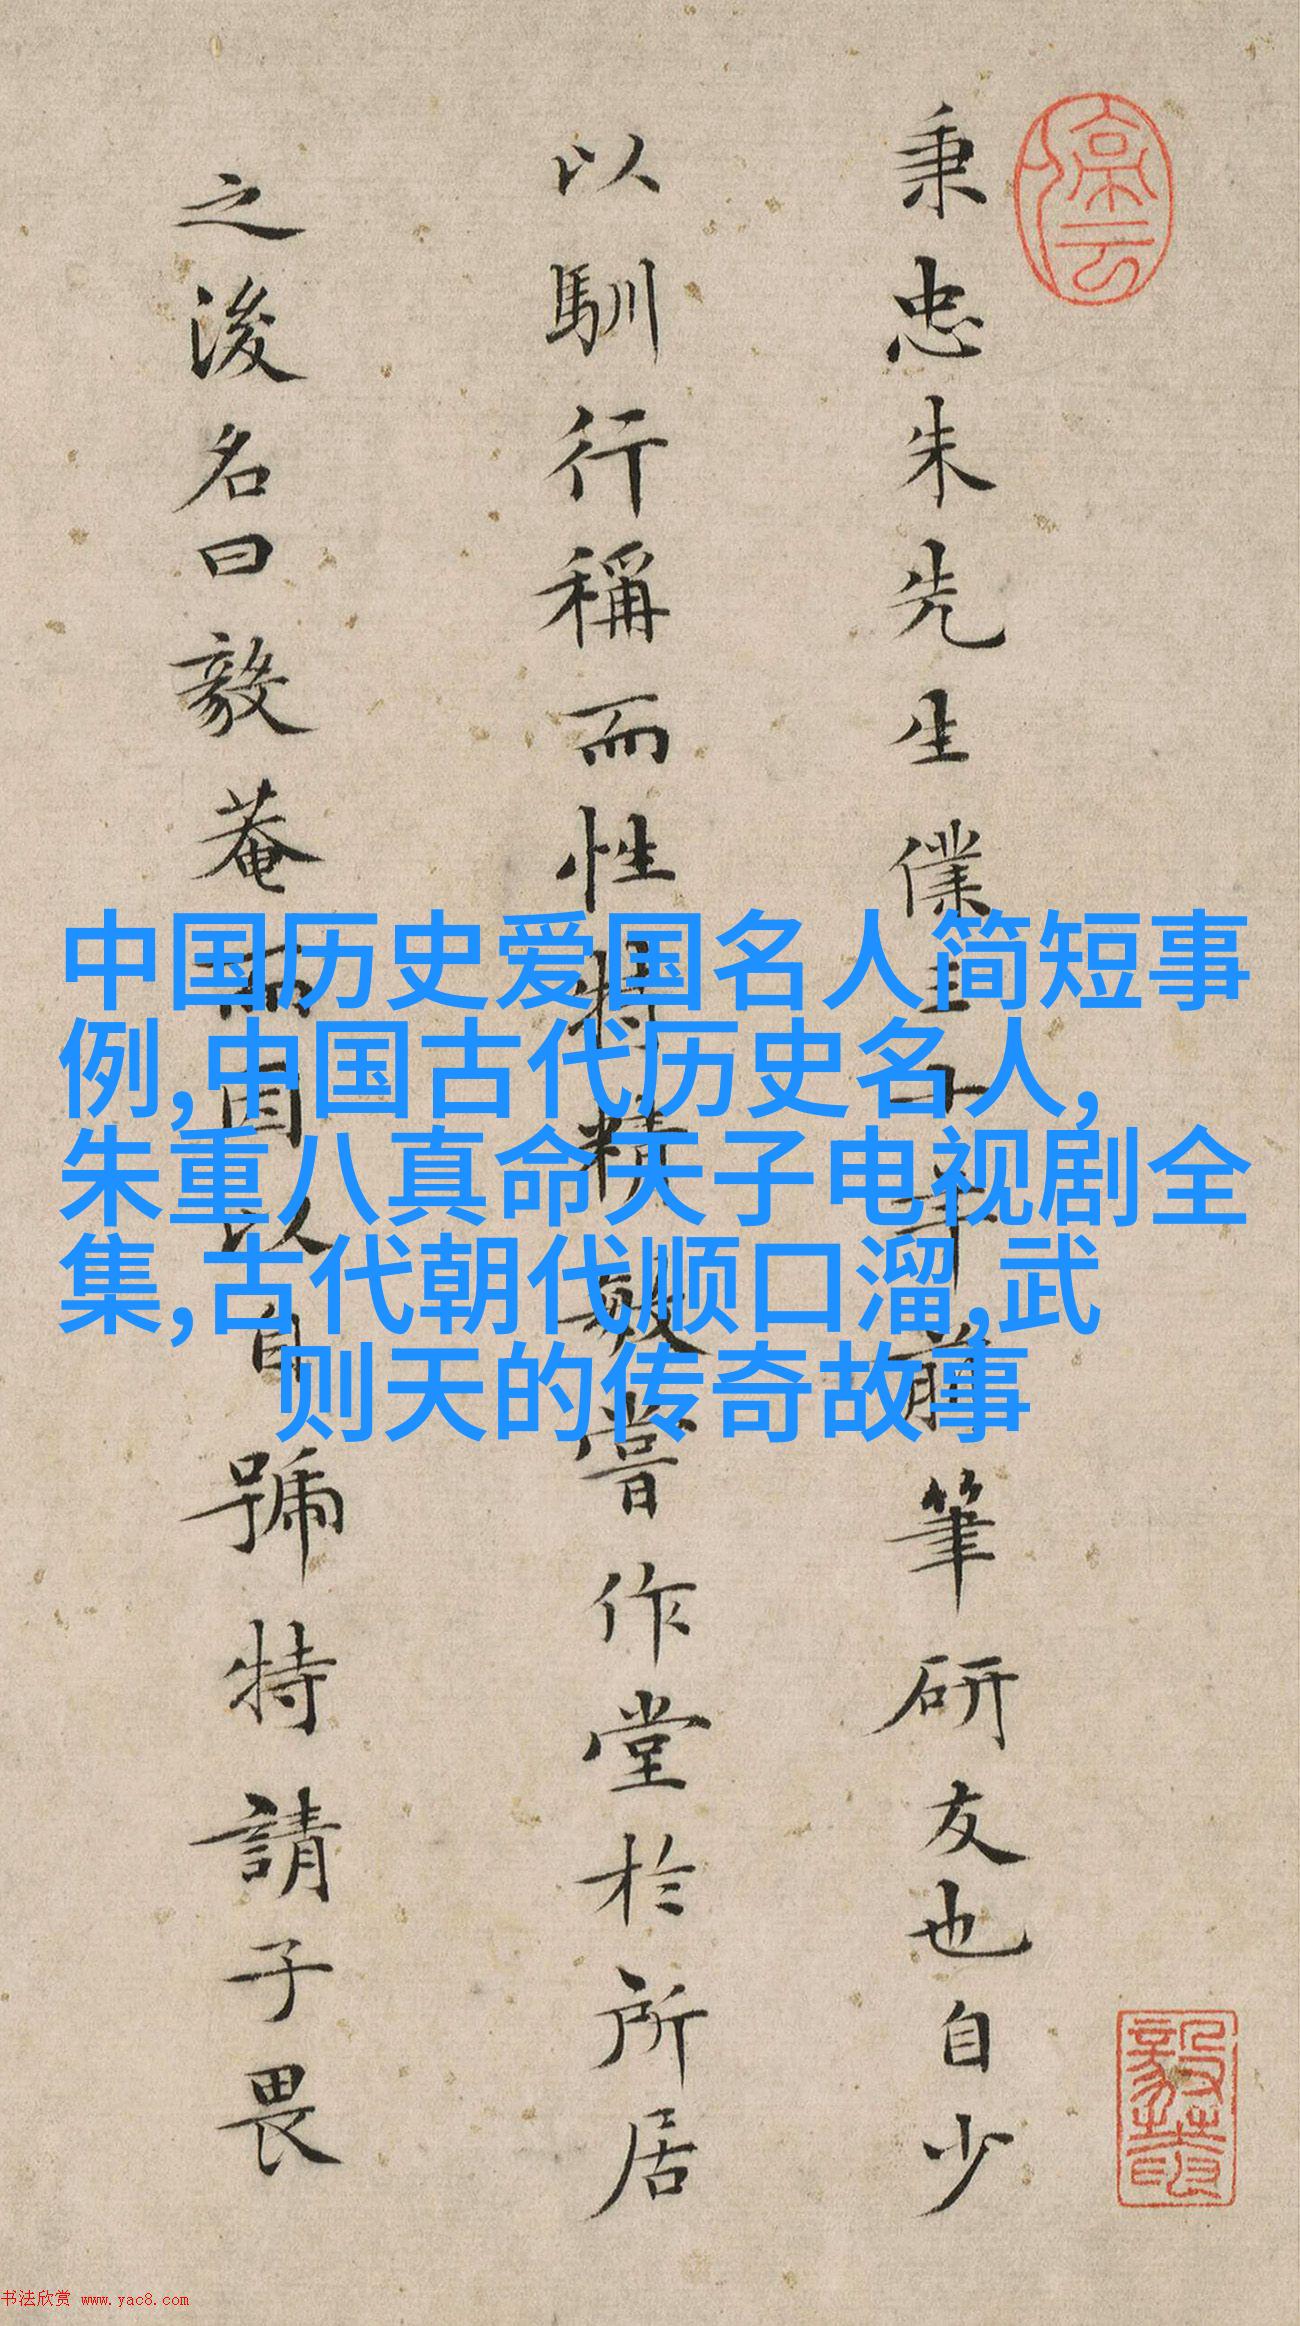 秉忠朱先生僕三十年前筆研友也自少
以馴行稱而性特精敏嘗作堂於所居
之後名曰毅菴而因以自號特請子畏
中国历史爱国名人简短事
例,中国古代历史名人,
朱重八真命天子电视剧全
集,古代朝代顺口溜,武
则天的传奇故事
书法欣赏 www.yac8.com